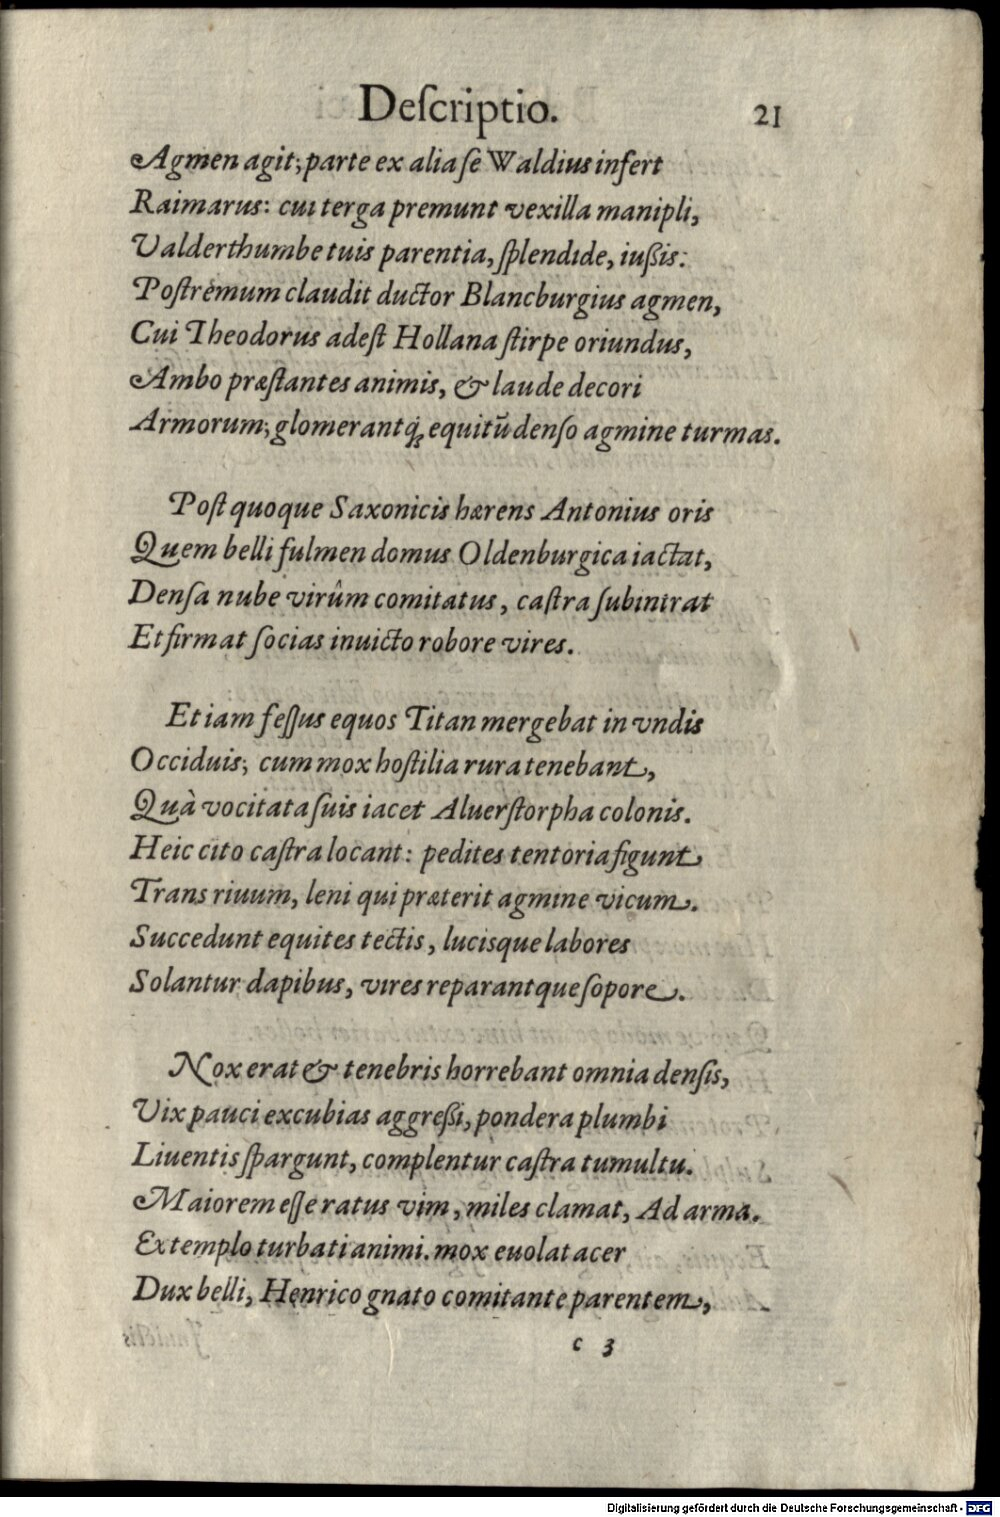 Deſcriptio. 21
Agmen agit; parte ex alia ſe Waldius infert
Raimarus: cui terga premunt vexilla manipli,
Valderthumbe tuis parentia, ſplendide, iußis:
Poſtremum claudit ductor Blancburgius agmen,
Cui Theodorus adeſt Hollana ſtirpe oriundus,
Ambo præſtantes animis, & laude decori
Armorum; glomerantq́; equitũ denſo agmine turmas.
Poſt quoque Saxonicis hærens Antonius oris
Quem belli fulmen domus Oldenburgica iactat,
Denſa nube virûm comitatus, caſtra ſubintrat
Et firmat ſocias inuicto robore vires.
Et iam feſſus equos Titan mergebat in vndis
Occiduis; cum mox hoſtilia rura tenebant,
Quà vocitata ſuis iacet Aluerſtorpha colonis.
Heic cito caſtra locant: pedites tentoria figunt
Trans riuum, leni qui præterit agmine vicum.
Succedunt equites tectis, lucisque labores
Solantur dapibus, vires reparantque ſopore.
Nox erat & tenebris horrebant omnia denſis,
Vix pauci excubias aggreßi, pondera plumbi
Liuentis ſpargunt, complentur caſtra tumultu.
Maiorem eſſe ratus vim, miles clamat, Ad arma.
Extemplo turbati animi. mox euolat acer
Dux belli, Henrico gnato comitante parentem,
c 3
Digitalisierung gefördert durch die Deutsche Forschungsgemeinschaft - DFG